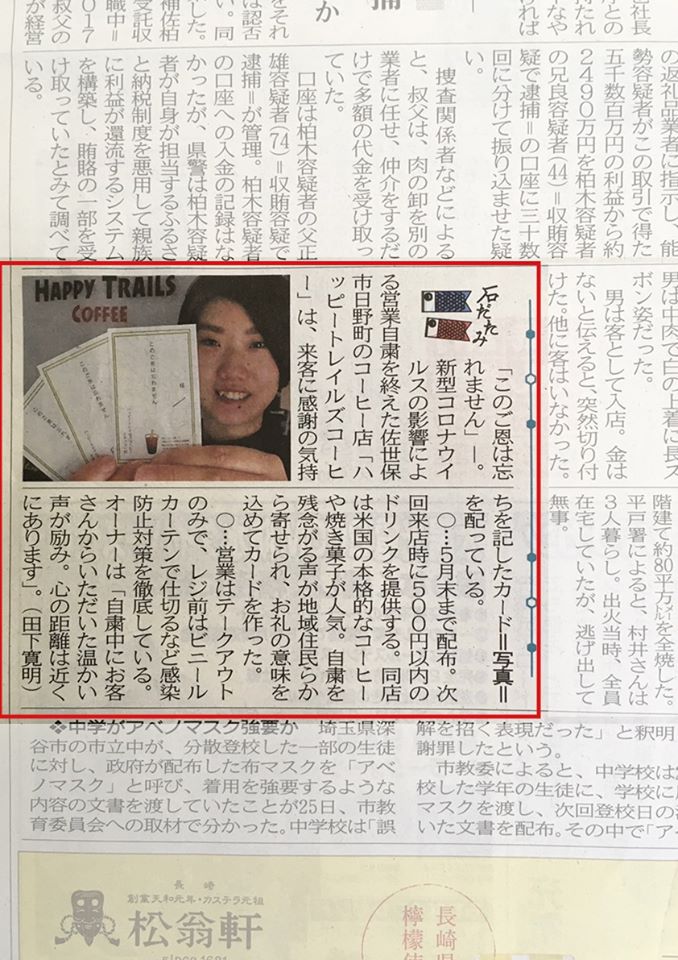 社長
との
持たれ
なや
ければ
捕
か
をそれ
は認否
い。同
補佐柏
受託収
職中＝
017
叔父の
が経営
の返礼品業者に指示し、能
勢容疑者がこの取引で得た
五千数百万円の利益から約
2490万円を柏木容疑者
の兄良容疑者(44)＝収賄容
疑で逮捕＝の口座に三十数
回に分けて振り込ませた疑
い。
捜査関係者などによる
と、叔父は、肉の卸を別の
業者に任せ、仲介をするだ
けで多額の代金を受け取っ
ていた。
口座は柏木容疑者の父正
雄容疑者(74)＝収賄容疑で
逮捕＝が管理。柏木容疑者
の口座への入金の記録はな
かったが、県警は柏木容疑
者が自身が担当するふるさ
と納税制度を悪用して親族
に利益が還流するシステム
を構築し、賄賂の一部を受
け取っていたとみて調べて
いる。
男は中肉で白の上着に長ズ
ボン姿だった。
男は客として入店。金は
ないと伝えると、突然切り付
けた。他に客はいなかった。
階建て約80平方㍍を全焼した。
平戸署によると、村井さんは
3人暮らし。出火当時、全員
在宅していたが、逃げ出して
無事。
石だたみ
「このご恩は忘
れません」―。
新型コロナウイ
ルスの影響によ
る営業自粛を終えた佐世保
市日野町のコーヒー店「ハ
ッピートレイルズコーヒ
ー」は、来客に感謝の気持
HAPPY TRAILS
COFFEE
このご恩は忘れません
このご恩は忘れません
このご恩は忘れません
様
ちを記したカード＝写真＝
を配っている。
○…5月末まで配布。次
回来店時に500円以内の
ドリンクを提供する。同店
は米国の本格的なコーヒー
や焼き菓子が人気。自粛を
残念がる声が地域住民らか
ら寄せられ、お礼の意味を
込めてカードを作った。
○…営業はテークアウト
のみで、レジ前はビニール
カーテンで仕切るなど感染
防止対策を徹底している。
オーナーは「自粛中にお客
さんからいただいた温かい
声が励み。心の距離は近く
にあります」。(田下寛明)
❖中学がアベノマスク強要か　埼玉県深
谷市の市立中が、分散登校した一部の生徒
に対し、政府が配布した布マスクを「アベ
ノマスク」と呼び、着用を強要するような
内容の文書を渡していたことが25日、市教
育委員会への取材で分かった。中学校は「誤
解を招く表現だった」と釈明
謝罪したという。
市教委によると、中学校は
校した学年の生徒に、学校に
マスクを渡し、次回登校日の
いた文書を配布。その中で「ア
長崎
創業天和元年・カステラ元祖
松翁軒
since 1681
長崎県
檸檬